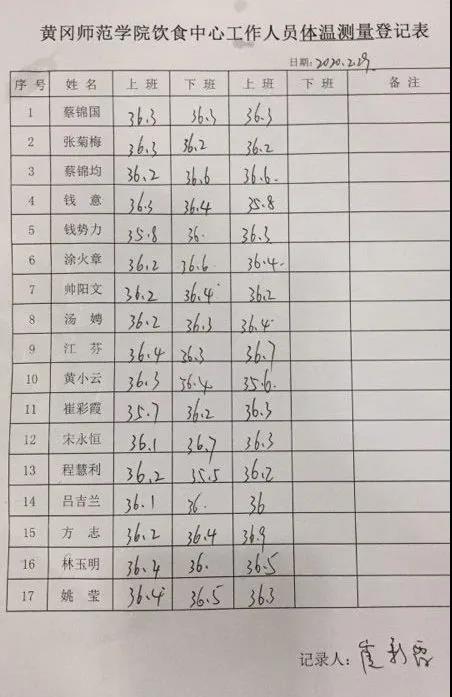 黄冈师范学院饮食中心工作人员体温测量登记表
日期: 2020.2.29
序号 姓名 上班 下班 上班 下班 备注
1 蔡锦国 36.3 36.3 36.3
2 张菊梅 36.3 36.2 36.2
3 蔡锦均 36.2 36.6 36.6
4 钱意 36.3 36.4 35.8
5 钱势力 35.8 36. 36.3
6 涂火章 36.2 36.6 36.4
7 帅阳文 36.2 36.4 36.2
8 汤娉 36.2 36.3 36.4
9 江芬 36.4 36.3 36.7
10 黄小云 36.3 36.4 35.6
11 崔彩霞 35.7 36.2 36.3
12 宋永恒 36.1 36.7 36.3
13 程慧利 36.2 35.5 36.2
14 吕吉兰 36.1 36. 36
15 方志 36.2 36.4 36.9
16 林玉明 36.4 36. 36.5
17 姚莹 36.4 36.5 36.3
记录人: 崔彩霞